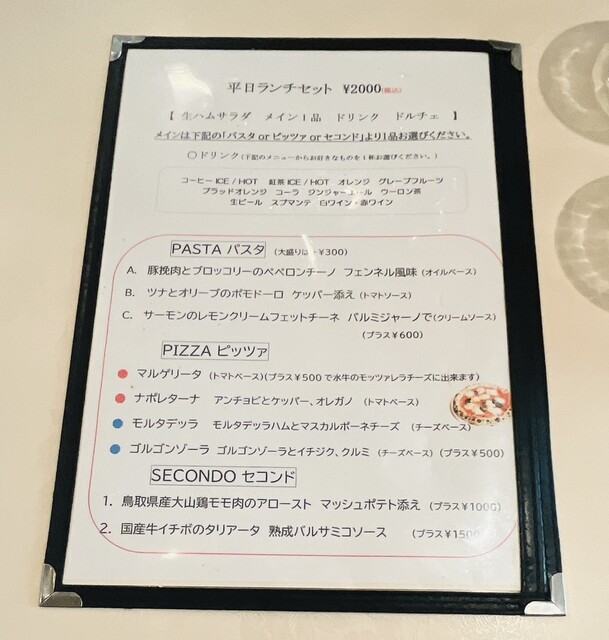 平日ランチセット ¥2000(税込)
【 生ハムサラダ メイン1品 ドリンク ドルチェ 】
メインは下記の「パスタ or ピッツァ or セコンド」より1品お選びください。
〇ドリンク(下記のメニューからお好きなものを1杯お選びください。)
コーヒー ICE / HOT 紅茶 ICE / HOT オレンジ グレープフルーツ
ブラッドオレンジ コーラ ジンジャーエール ウーロン茶
生ビール スプマンテ 白ワイン・赤ワイン
PASTA パスタ (大盛りは+¥300)
A. 豚挽肉とブロッコリーのペペロンチーノ フェンネル風味 (オイルベース)
B. ツナとオリーブのポモドーロ ケッパー添え (トマトソース)
C. サーモンのレモンクリームフェットチーネ パルミジャーノで (クリームソース)
(プラス¥600)
PIZZA ピッツァ
● マルゲリータ (トマトベース)(プラス¥500で水牛のモッツァレラチーズに出来ます)
● ナポレターナ アンチョビとケッパー、オレガノ (トマトベース)
● モルタデッラ モルタデッラハムとマスカルポーネチーズ (チーズベース)
● ゴルゴンゾーラ ゴルゴンゾーラとイチジク、クルミ (チーズベース) (プラス¥500)
SECONDO セコンド
1. 鳥取県産大山鶏モモ肉のアロースト マッシュポテト添え (プラス¥1000)
2. 国産牛イチボのタリアータ 熟成バルサミコソース (プラス¥1500)